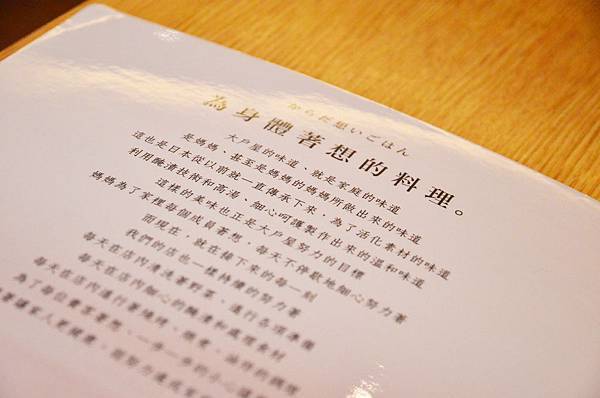 からだ想いごはん
為身體著想的料理。
大戶屋的味道、就是家庭的味道
是媽媽、甚至是媽媽的媽媽所做出來的味道
這也是日本從以前就一直傳承下來，為了活化素材的味道
利用醃漬技術和高湯、細心呵護製作出來的溫和味道
這樣的美味也正是大戶屋努力的目標
媽媽為了家裡每個成員著想，每天不停歇地細心努力著
而現在，就在接下來的每一刻
我們的店也一樣持續的努力著
每天在店內清洗著野菜，進行各項準備
每天在店內細心的醃漬和處理食材
每天在店內進行著燒烤、
為了每位貴客著想，一步一步的小心